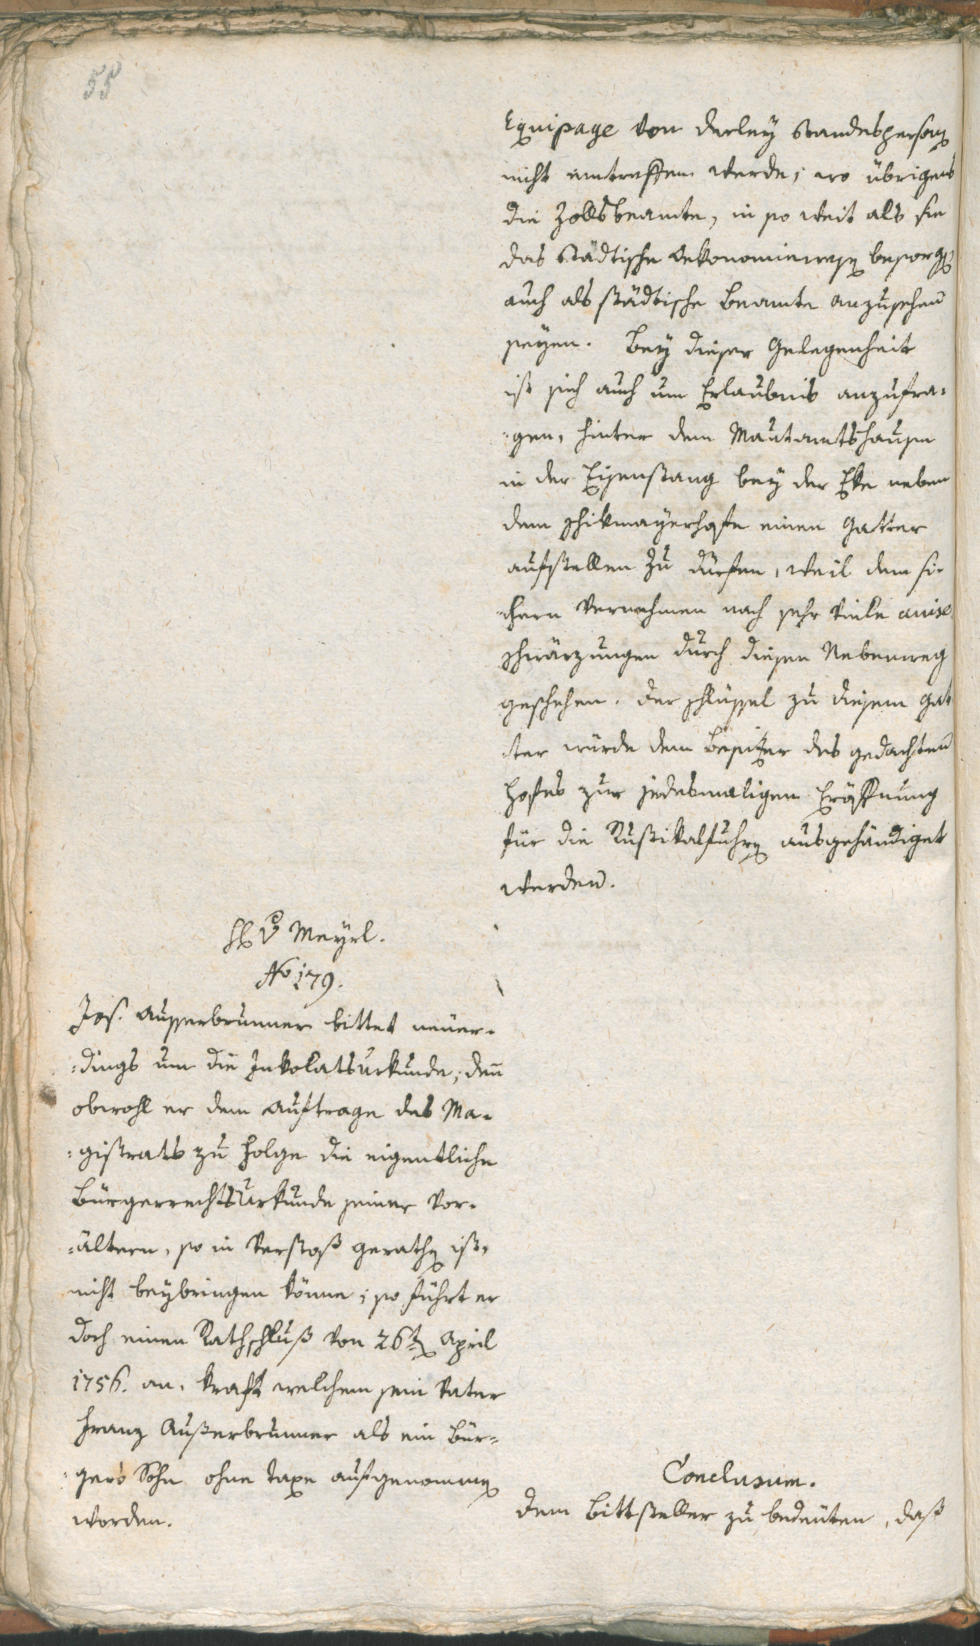 55
Equipage von derley Standespersonen
nicht eintreffen werde; wo übrigens
die Zollsbeamte, in so weit als sie
das städtische Oekonomiewesen besorgen
auch als städtische Beamte anzusehen
seyen. Bey dieser Gelegenheit
ist sich auch um Erlaubnis anzufra-
-gen, hinter dem Mautamtshause
in der Eisenstang bey der Eke neben
dem Schikmayerhofe einen Gatter
aufstellen zu därfen, weil dem si-
chern Vernehmen nach sehr viele
schwärzungen durch diesen Nebenweg
geschehen. Der Schlüssel zu diesem Gat
ter würde dem Besitzer des gedachten
Hofes zur jedesmaligen Eröffnung
für die Rustikalfuhren ausgehändiget
werden.
H. v Mayrl.
No 179.
Jos. Ausserbrunner bittet neüer-
-dings um die Inkolatsurkunde; denn
obwohl er dem Auftrage des Ma-
-gistrats zu Folge die eigentliche
Bürgerrechtsurkunde seiner Vor-
-ältern, so in Verstoß gerathen ist,
nicht beybringen könne; so führt er
doch einen Rathschluß von 26ten April
1756. an, kraft welchem sein Vater
Franz Außerbrunner als ein Bür-
-gers Sohn ohne Taxe aufgenommen
worden.
Conclusum.
Dem Bittsteller zu bedeuten, daß